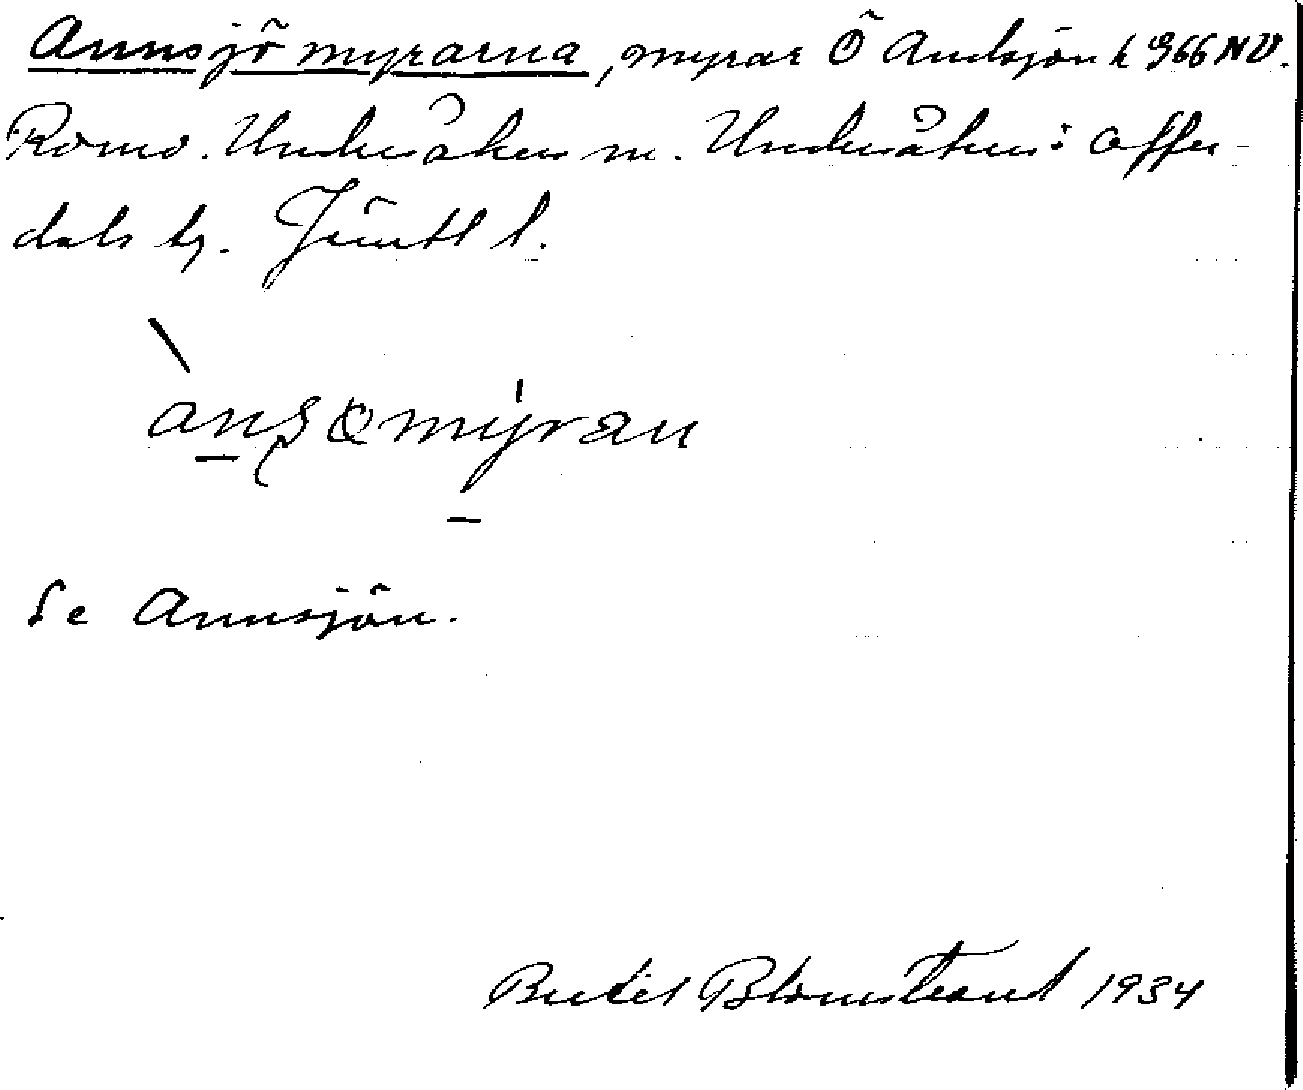 Annsjömyrarna, myrar Ö Andsjön h 966 NV.
Romo. Undersåkers sn. Undersåkers o Offer-
dals tg. Jämtl l.
ansømyran
Se Annsjön.
Bertil Blomstrand 1934